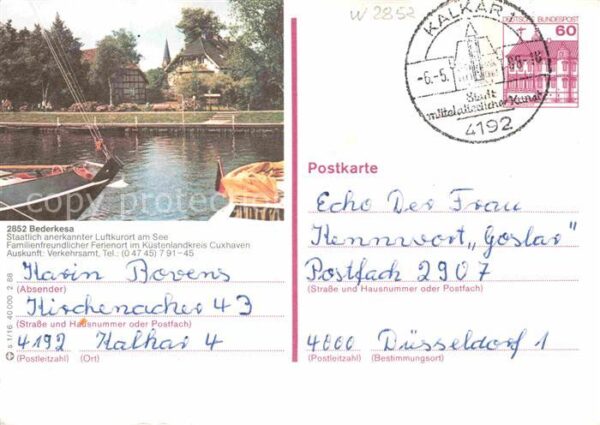 W 2852
KALKAR 1
-6.-5.
Stadt
mittelalterlicher Kunst
4192
DEUTSCHE BUNDESPOST
60
copy protected
2852 Bederkesa
Staatlich anerkannter Luftkurort am See
Familienfreundlicher Ferienort im Küstenlandkreis Cuxhaven
Auskunft: Verkehrsamt, Tel.: (0 47 45) 7 91-45
Karin Bovens
(Absender)
Kirchenacker 43
(Straße und Hausnummer oder Postfach)
4192 Kalkar 4
(Postleitzahl) (Ort)
s 1/16 40 000 2 88
Postkarte
Echo Der Frau
Kennwort „Goslar"
Postfach 2907
(Straße und Hausnummer oder Postfach)
4000 Düsseldorf 1
(Postleitzahl) (Bestimmungsort)